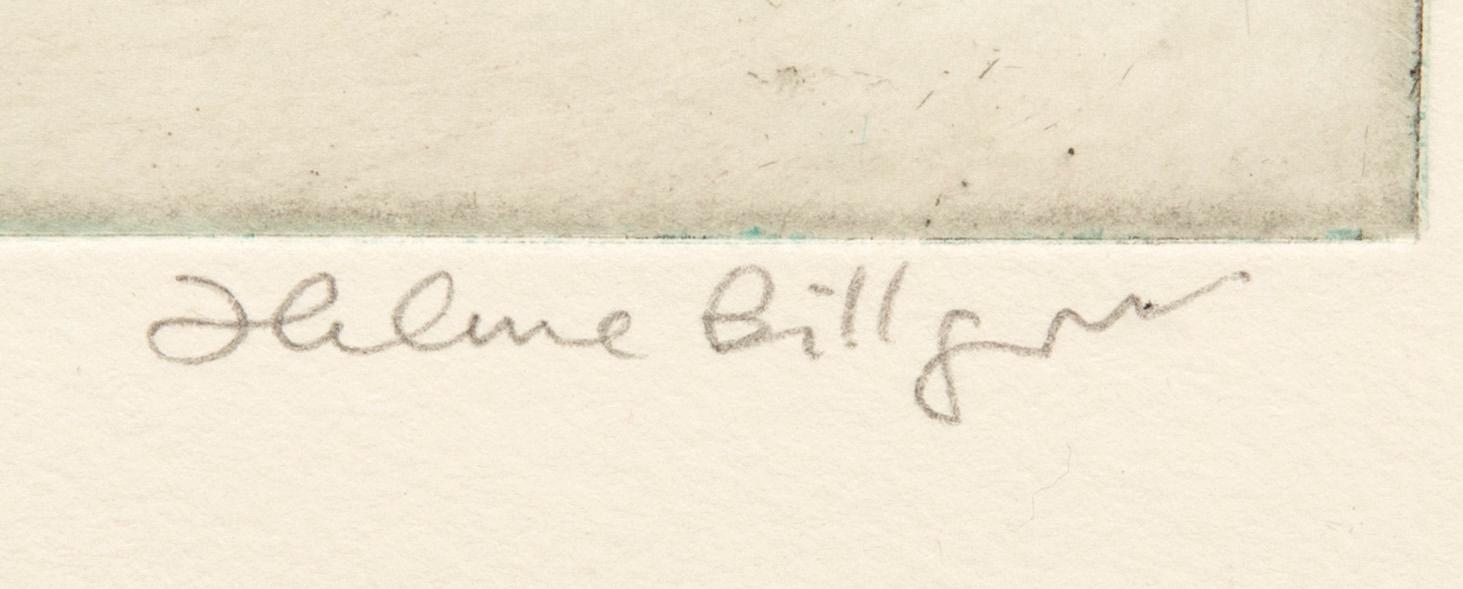 Helene Billgren